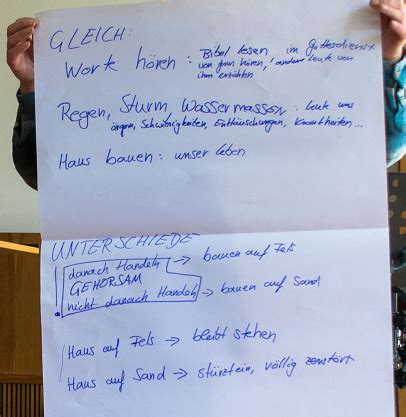 GLEICH:
Worte hören : Bibel lesen, im Gottesdienst
von ihm hören, andere Leute von
ihm erzählen
Regen, Sturm, Wassermassen : Leute uns
ärgern, Schwierigkeiten, Enttäuschungen, Krankheiten...
Haus bauen : unser Leben
UNTERSCHIEDE
danach Handeln → bauen auf Fels
GEHORSAM
nicht danach Handeln → bauen auf Sand
Haus auf Fels → bleibt stehen
Haus auf Sand → stürzt ein, völlig zerstört